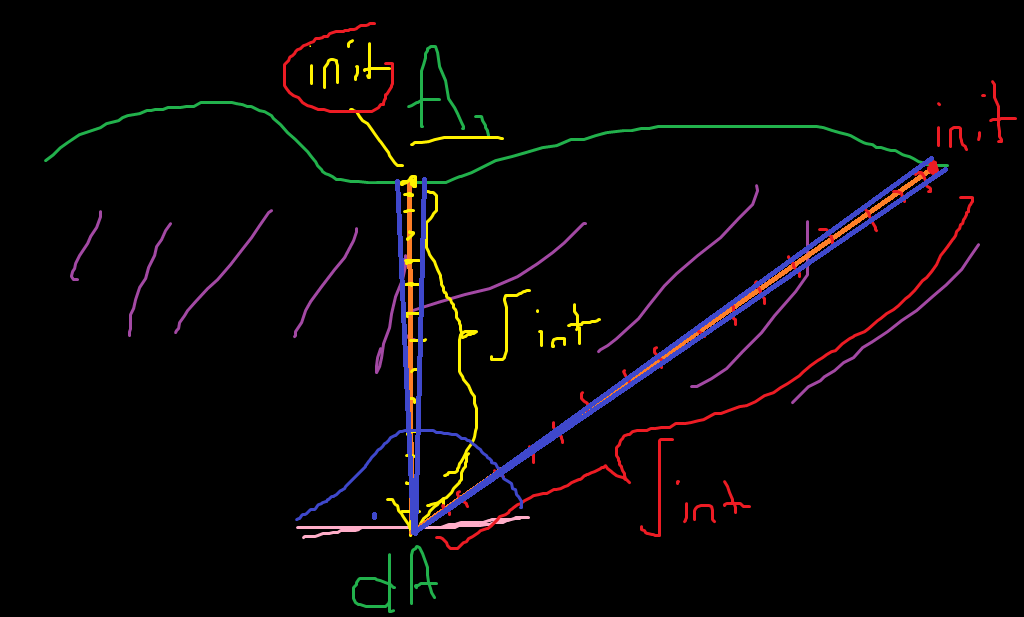 init
A
init
∫int
∫int
dA